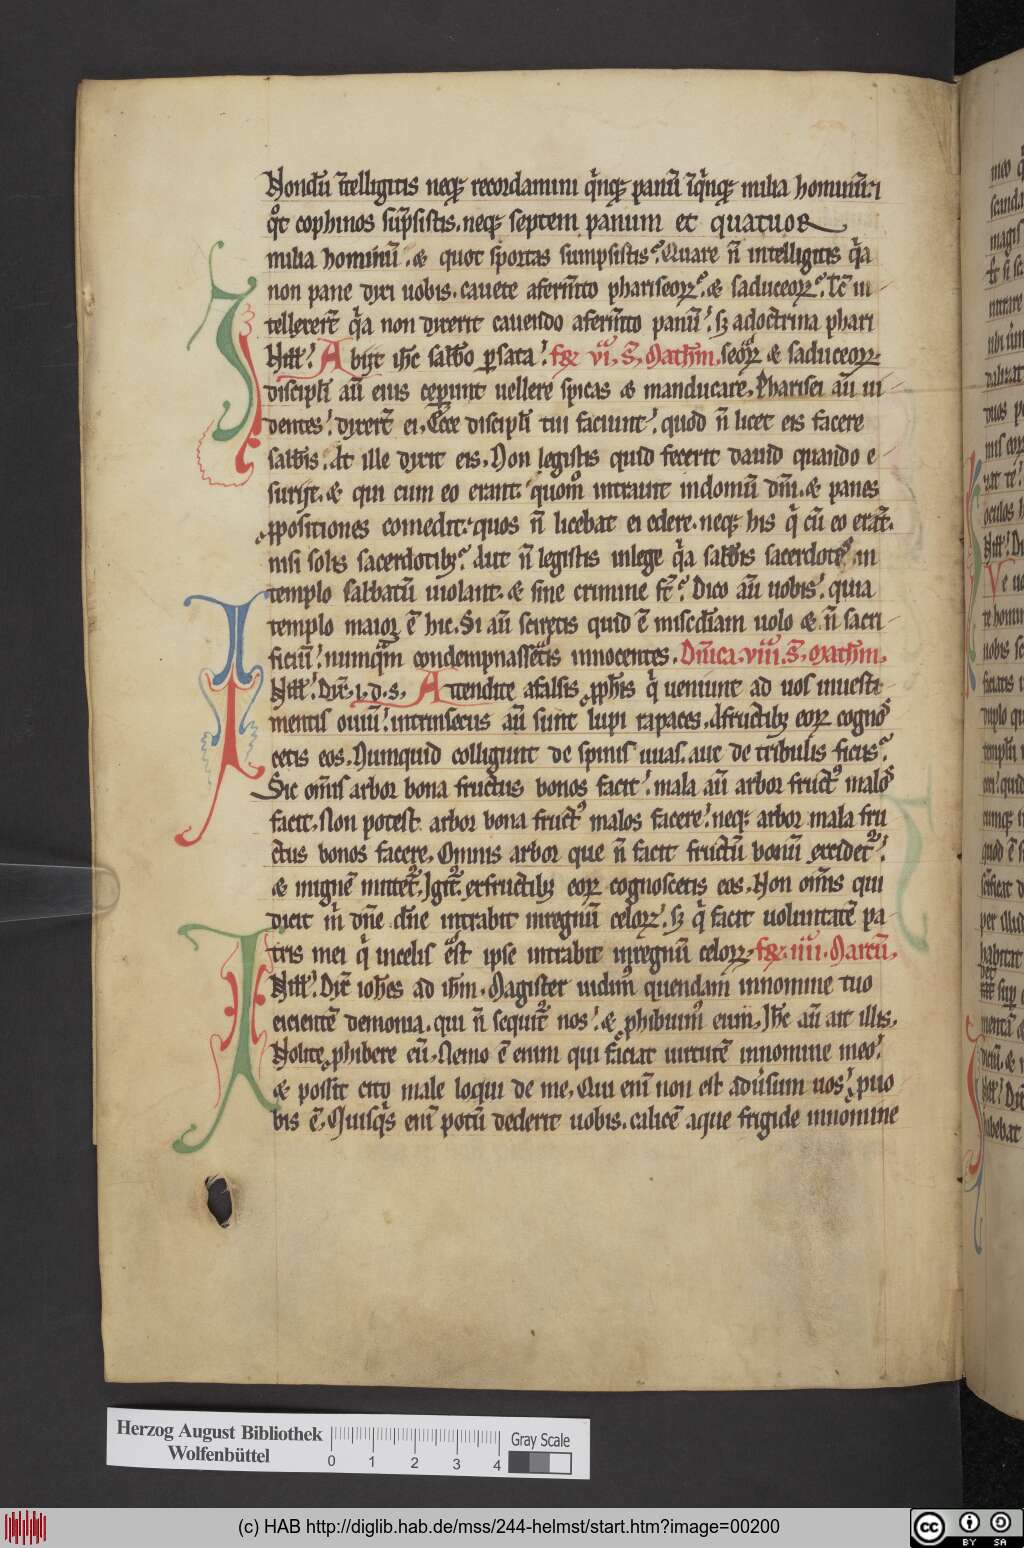 Nondū ītelligitis neqꝫ recordamini qͥnqꝫ panū ⁊ qͥnqꝫ milia hominū. ⁊
qͦt cophinos sūpsistis. neqꝫ septem panum et quatuor
milia hominū. & quot sportas sumpsistis? Quare n̄ intelligitis qͥa
non pane dixi uobis. cauete a fermto phariseoꝝ? & saduceoꝝ? Tc̄ in
tellexert̄ qͥa non dixerit cauendo a fermto panū. sꝫ a doctrina phari
N ill. Abijt ih̄c sabb̄o ꝑ sata. fꝝ vi. S. Math̄m. seoꝝ & saduceoꝝ.
discipl̄i aū eius ceperunt uellere spicas & manducare. Pharisei aū ui
dentes. dixert̄ ei. Ecce discipl̄i tui faciunt. quod n̄ licet eis facere
sabb̄is. At ille dixit eis. Non legistis quid fecerit dauid quando e
surijt. & qui cum eo erant. quom̊ intrauit in domū dn̄i. & panes
ꝓpositiones comedit. quos n̄ licebat ei edere. neqꝫ his qͥ cū eo erāt.
nisi solis sacerdotibꝫ? Aut n̄ legistis in lege qͥa sabb̄is sacerdotes in
templo sabbatū uiolant. & sine crimine st̄? Dico aū uobis. quia
templo maior ē hic. Si aū sciretis quid ē misc̄diam uolo & n̄ sacri
ficiū. numqͣm condempnassetis innocentes. Dnīca. viii. S. Math̄m.
N ill. Dix̄. i. d. s. Attendite a falsis ꝓph̄is qͥ ueniunt ad uos in uesti
mentis ouiū. intrinsecus aū sunt lupi rapaces. A fructibꝫ eoꝝ cognos
cetis eos. Numquid colligunt de spinis uuas. aut de tribulis ficus?
Sic om̄is arbor bona fructus bonos facit. mala aū arbor fruct᷒ malos
facit. Non potest arbor bona fruct᷒ malos facere. neqꝫ arbor mala fru
ctus bonos facere. Omnis arbor que n̄ facit fructū bonū excidet᷑.
& in ignē mittet᷑. Igit᷑ ex fructibꝫ eoꝝ cognoscetis eos. Non om̄is qui
dicit m̄ dn̄e dn̄e intrabit in regnū celoꝝ. sꝫ qͥ facit uoluntatē pa
tris mei qͥ in celis est ipse intrabit in regnū celoꝝ. fꝝ. iiii. Marcū.
N ill. Dix̄ ioh̄es ad ih̄m. Magister uidim᷒ quendam in nomine tuo
eicientē demonia. qui n̄ sequit᷑ nos. & ꝓhibuim᷒ eum. Ih̄c aū ait illis.
Nolite ꝓhibere eū. Nemo ē enim qui faciat uirtutē in nomine meo.
& possit cito male loqui de me. Qui eni non est aduūsum uos. ꝓ uo
bis ē. Quisqͥs eni potū dederit uobis. calicē aque frigide in nomine
Herzog August Bibliothek
Wolfenbüttel
0 1 2 3 4
Gray Scale
(c) HAB http://diglib.hab.de/mss/244-helmst/start.htm?image=00200
cc BY SA